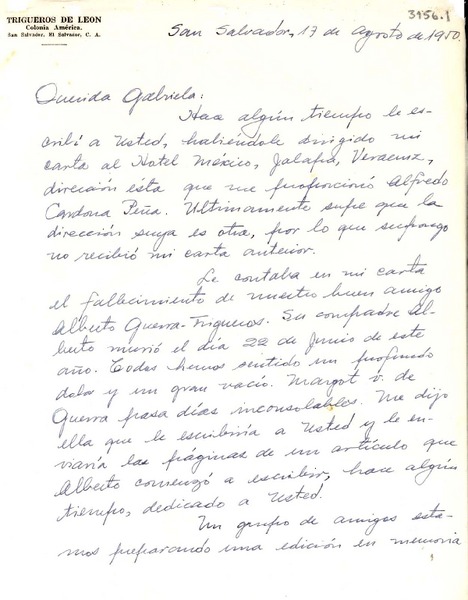 TRIGUEROS DE LEON
Colonia América.
San Salvador, El Salvador, C. A.
3956.1
San Salvador, 17 de agosto de 1950.
Querida Gabriela:
Hace algún tiempo le es-
cribí a Usted, habiéndole dirigido mi
carta al Hotel México, Jalapa, Veracruz,
dirección ésta que me proporcionó Alfredo
Cardona Peña. Ultimamente supe que la
dirección suya es otra, por lo que supongo
no recibió mi carta anterior.
Le contaba en mi carta
el fallecimiento de nuestro buen amigo
Alberto Guerra-Trigueros. Su compadre Al-
berto murió el día 22 de Junio de este
año. Todos hemos sentido un profundo
dolor y un gran vacío. Margot v. de
Guerra pasa días inconsolables. Me dijo
ella que le escribiría a Usted y le en-
viaría las páginas de un artículo que
Alberto comenzó a escribir, hace algún
tiempo, dedicado a Usted.
Un grupo de amigos esta-
mos preparando una edición en memoria